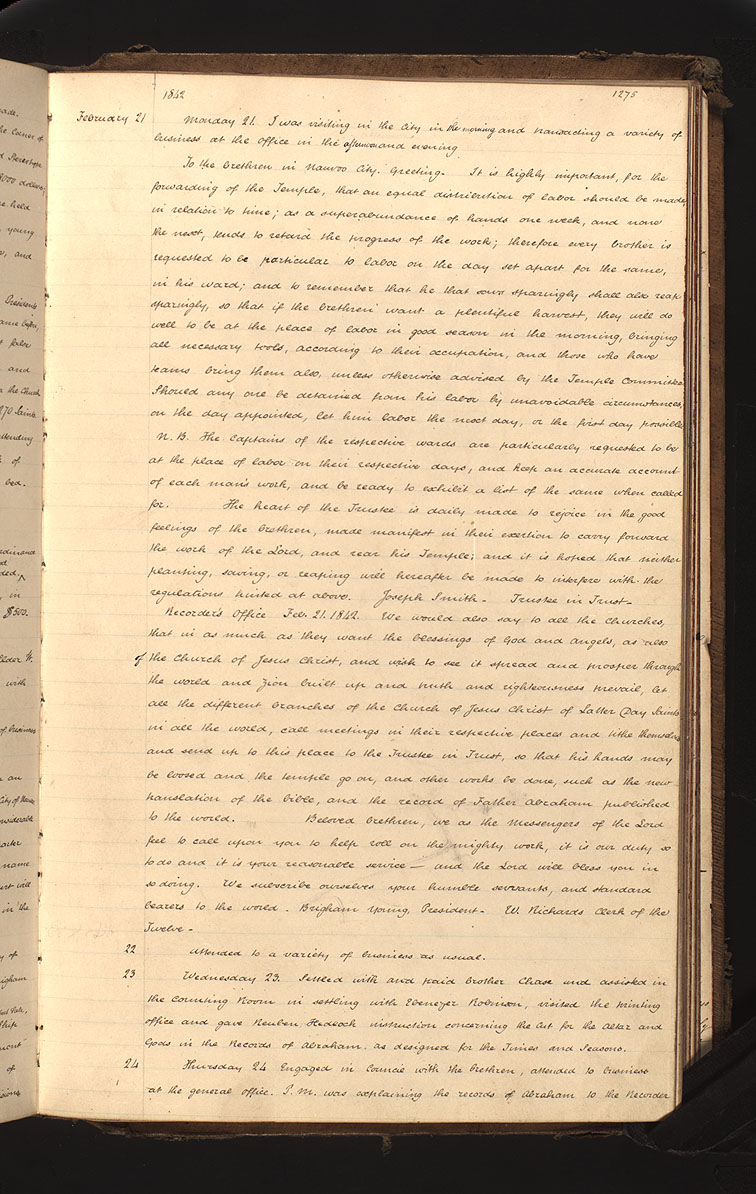 1842
1275
February 21 Monday 21. I was visiting in the City in the morning and transacting a variety of
business at the office in the afternoon and evening
To the brethren in Nauvoo City. Greeting. It is highly important, for the
forwarding of the Temple, that an equal distribution of labor should be made
in relation to time; as a superabundance of hands one week, and none
the next, tends to retard the progress of the work; therefore every brother is
requested to be particular to labor on the day set apart for the same,
in his ward; and to remember that he that sows sparingly shall also reap
sparingly, so that if the brethren want a plentiful harvest, they will do
well to be at the place of labor in good season in the morning, bringing
all necessary tools, according to their occupation, and those who have
teams bring them also, unless otherwise advised by the Temple Committee.
Should any one be detained from his labor by unavoidable circumstances,
on the day appointed, let him labor the next day, or the first day possible
N. B. The captains of the respective wards are particularly requested to be
at the place of labor on their respective days, and keep an accurate account
of each man's work, and be ready to exhibit a list of the same when called
for. The heart of the Trustee is daily made to rejoice in the good
feelings of the brethren, made manifest in their exertion to carry forward
the work of the Lord, and rear his Temple; and it is hoped that neither
planting, sowing, or reaping will hereafter be made to interfere with the
regulations hinted at above. Joseph Smith - Trustee in Trust -
Recorder's Office Feb. 21. 1842. We would also say to all the churches,
that in as much as they want the blessings of God and angels, as also
of the Church of Jesus Christ, and wish to see it spread and prosper through
the world and Zion built up and truth and righteousness prevail, let
all the different branches of the Church of Jesus Christ of Latter Day Saints
in all the world, call meetings in their respective places and tithe themselves
and send up to this place to the Trustee in Trust, so that his hands may
be loosed and the temple go on, and other works be done, such as the new
translation of the bible, and the record of Father Abraham published
to the world. Beloved brethren, we as the Messengers of the Lord
feel to call upon you to help roll on the mighty work, it is our duty so
to do and it is your reasonable service — and the Lord will bless you in
so doing. We subscribe ourselves your humble servants, and standard
bearers to the world. Brigham Young, President - W. Richards Clerk of the
Twelve -
22 Attended to a variety of business as usual.
23 Wednesday 23. Settled with and paid brother Chase and assisted in
the Counting Room in settling with Ebenezer Robinson, visited the printing
office and gave Reuben Hedlock instruction concerning the Cut for the Altar and
Gods in the Records of Abraham. as designed for the Times and Seasons.
24 Thursday 24 Engaged in Council with the brethren, attended to business
at the general office. P. M. was explaining the records of Abraham to the Recorder